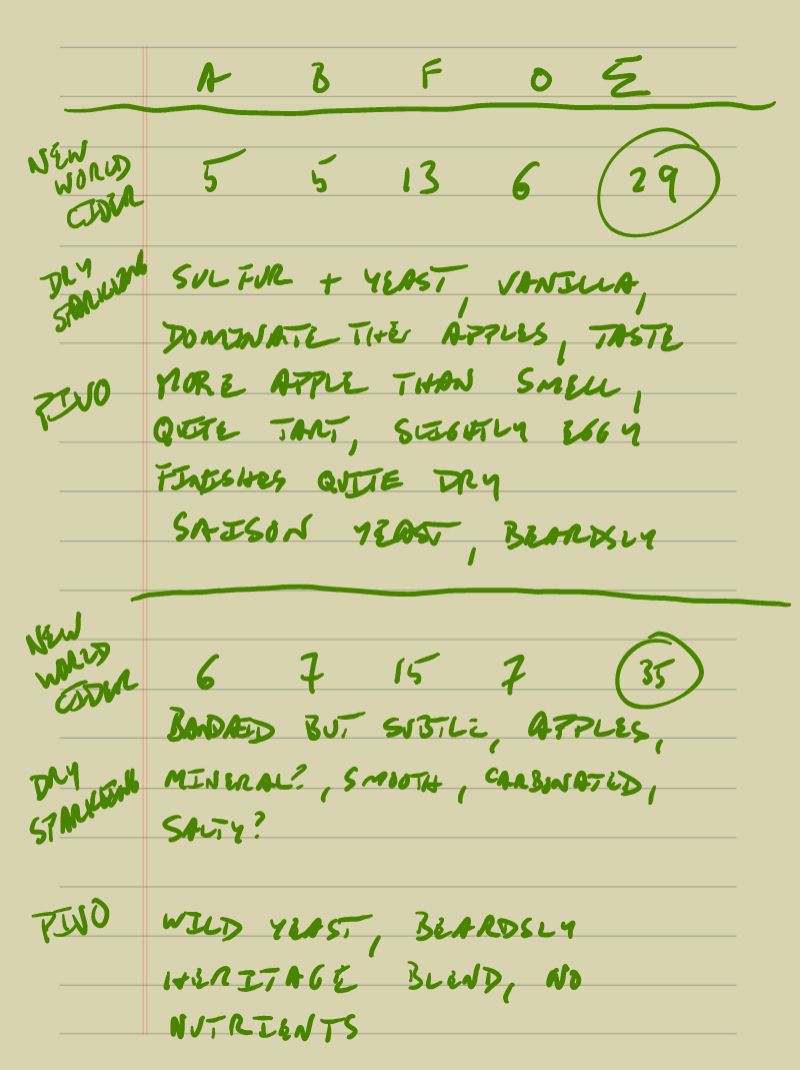 A B F O Σ
NEW WORLD CIDER 5 5 13 6 29
DRY SPARKLING SULFUR + YEAST, VANILLA,
DOMINATE THE APPLES, TASTE
PIVO MORE APPLE THAN SMELL,
QUITE TART, SLIGHTLY EGGY
FINISHES QUITE DRY
SAISON YEAST, BEARDSLY
NEW WORLD CIDER 6 7 15 7 35
BANDAID BUT SUBTLE, APPLES,
DRY SPARKLING MINERAL?, SMOOTH, CARBONATED,
SALTY?
PIVO WILD YEAST, BEARDSLY
HERITAGE BLEND, NO
NUTRIENTS